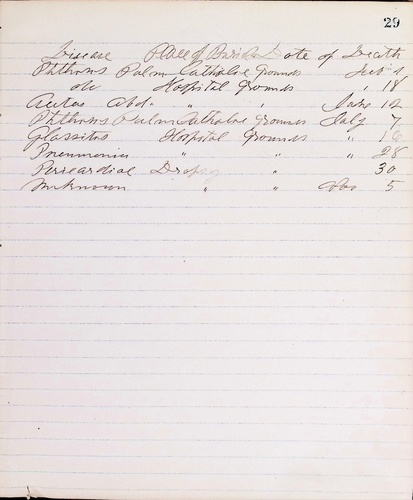 29
Disease Place of Burial Date of Death
Phthisis Palm Catholic Grounds Feb 4
do Hospital Grounds " 18
Acites Abd. " " June 12
Phthisis Palm Catholic Grounds July 7
Glossitus Hospital Grounds " 16
Pneumonia " " " 28
Perecardial Dropsy " 30
Unknown " " 5